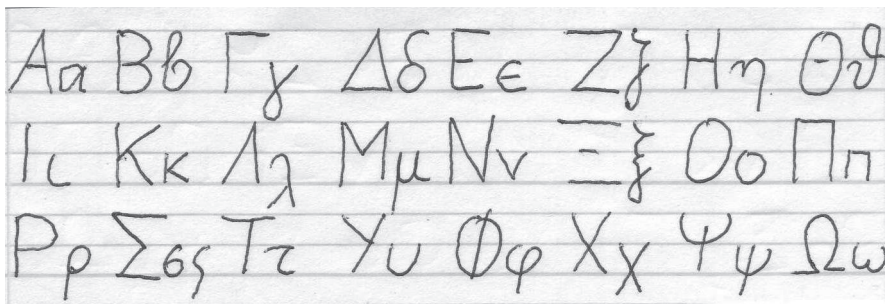 Αα Ββ Γγ Δδ Εε Ζζ Ηη Θϑ
Ιι Κκ Λλ Μμ Νν Ξξ Οο Ππ
Ρρ Σσς Ττ Υυ Φφ Χχ Ψψ Ωω